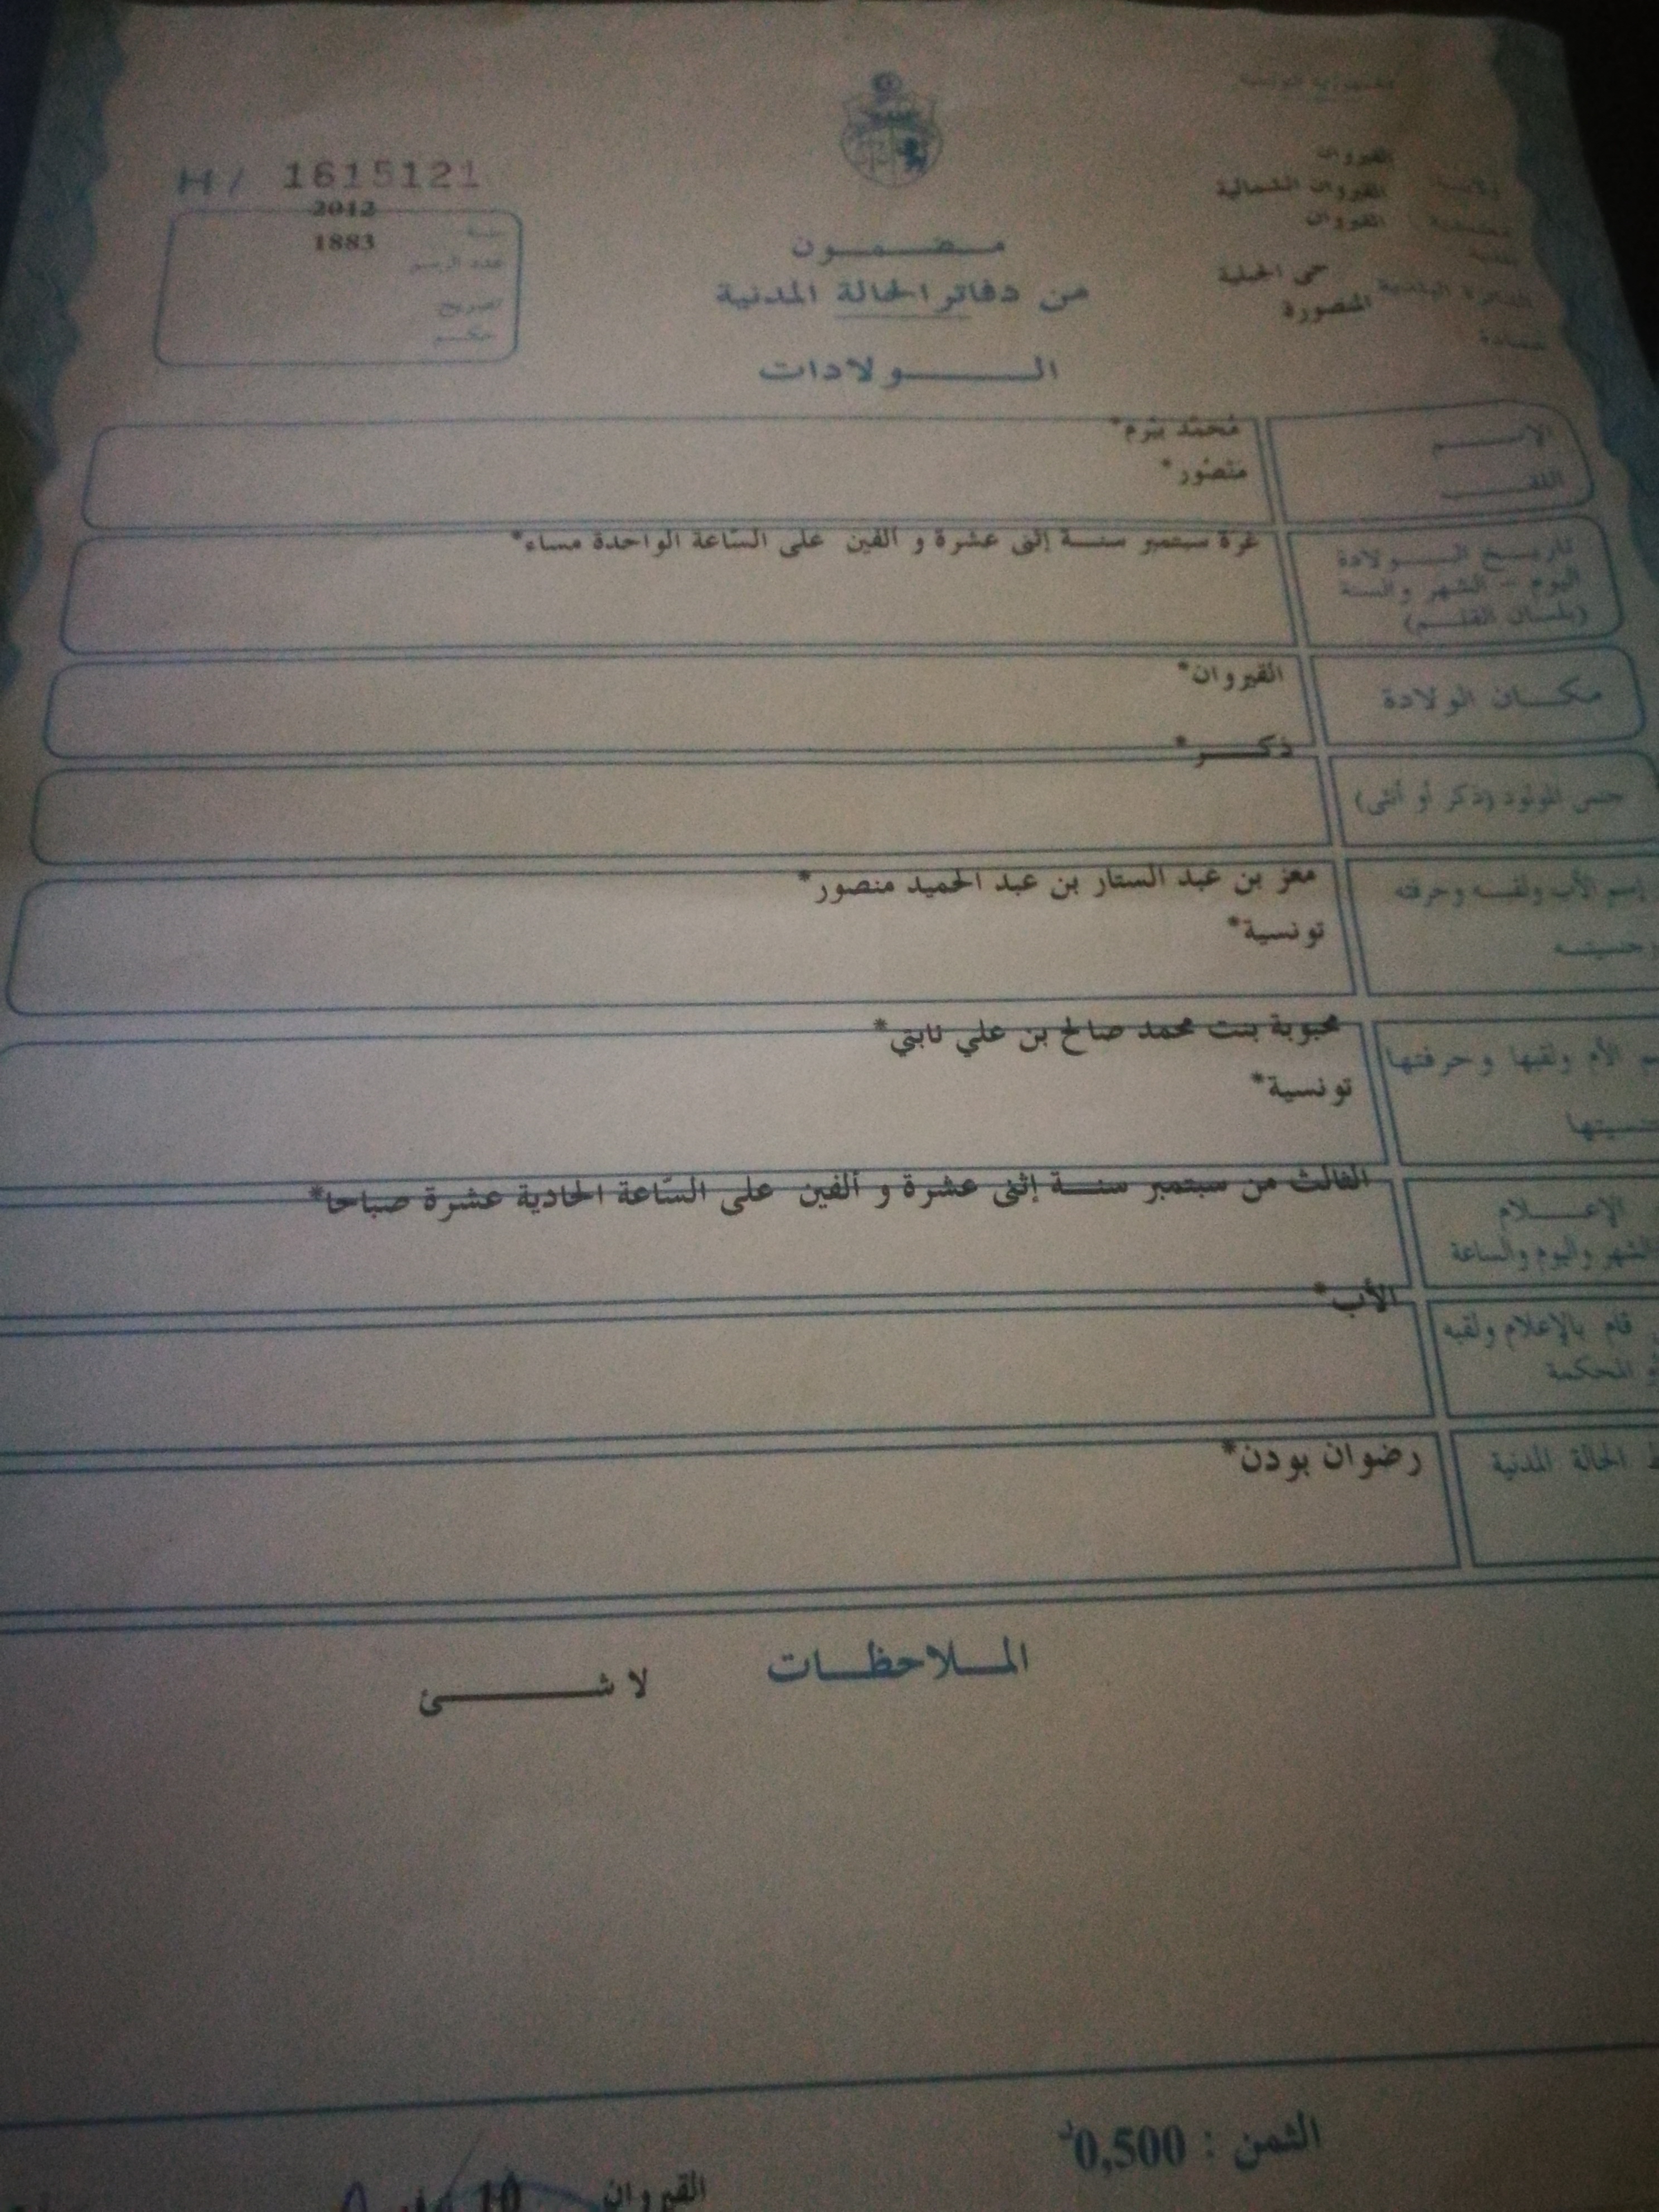 الجمهورية التونسية
H/ 1615121
ولاية القيروان
معتمدية القيروان الشمالية
بلدية القيروان
الدائرة البلدية حي الجبلية
عمادة المنصورة
سنة 2012
عدد الرسم 1883
تصريح
حكم
مضمون
من دفاتر الحالة المدنية
الولادات
الاسم محمد بيرم*
اللقب منصور*
تاريخ الولادة غرة سبتمبر سنة إثنى عشرة و ألفين على السّاعة الواحدة مساء*
اليوم - الشهر والسنة
(بلسان القلم)
مكان الولادة القيروان*
ذكر*
جنس المولود (ذكر أو أنثى)
إسم الأب ولقبه وحرفته معز بن عبد الستار بن عبد الحميد منصور*
تونسية*
وجنسيته
الأم ولقبها وحرفتها محبوبة بنت محمد صالح بن علي
تونسية*
الثالث من سبتمبر سنة إثنى عشرة و ألفين على السّاعة الحادية عشرة صباحا*
الإعلام
الشهر واليوم والساعة
الأب*
قام بالإعلام ولقبه
المحكمة
الحالة المدنية رضوان بودن*
الملاحظات
لا شئ
الثمن : 0,500د
القيروان 10